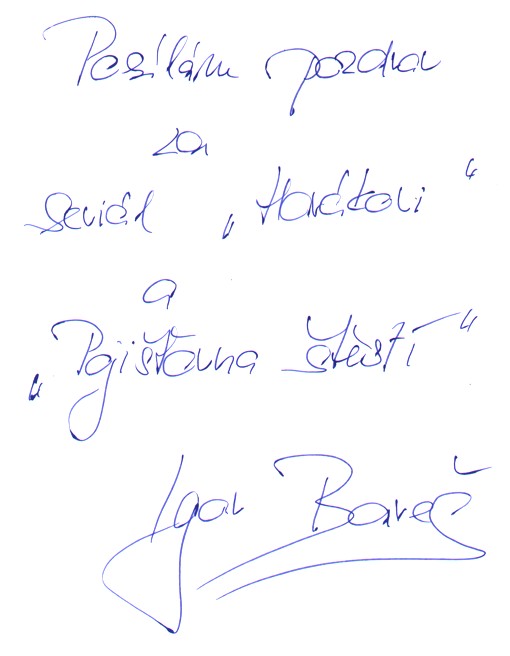 Posílám pozdrav
za
seriál „Horákovi“
a
„Pojišťovna štěstí“
Igor Bareš